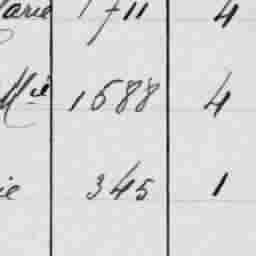 arie 1711 4
Mie 1688 4
ie 345 1